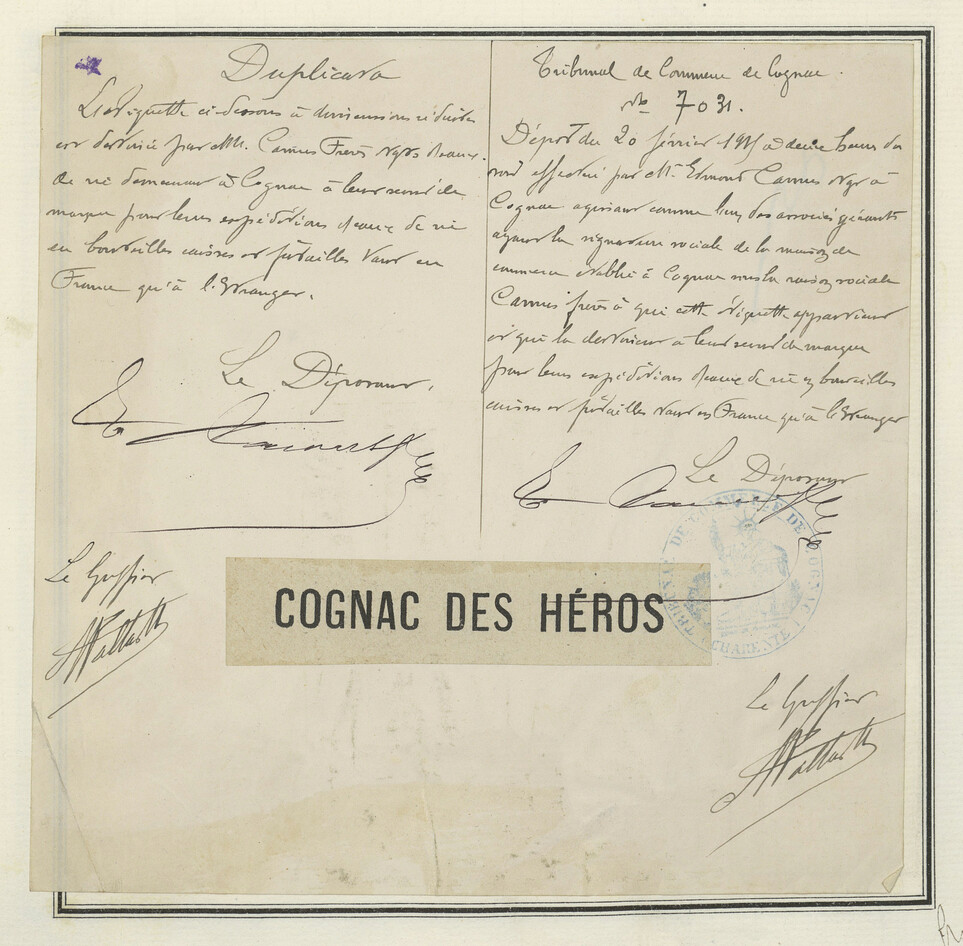 Duplicata
La Vignette ci-dessous à dimensions réduites
est destinée par MM. Camus Frères Ngts d'eaux-
de vie demeurant à Cognac à leur servir de
marque pour leurs expéditions d'eaux de vie
en bouteilles caisses et futailles tant en
France qu'à l'Etranger.
Le Déposant,
Le Greffier
Tribunal de Commerce de Cognac.
No 7031.
Dépôt du 20 février 1915 à deux heures du
soir effectué par Mr. Edmond Camus Ngt à
Cognac agissant comme l'un des associés gérants
ayant la signature sociale de la maison de
commerce établie à Cognac sous la raison sociale
Camus frères à qui cette vignette appartient
et qui la destinent à leur servir de marque
pour leurs expéditions d'eaux de vie en bouteilles
caisses et futailles tant en France qu'à l'Etranger
Le Déposant
TRIBUNAL DE COMMERCE DE COGNAC
CHARENTE
COGNAC DES HÉROS
Le Greffier